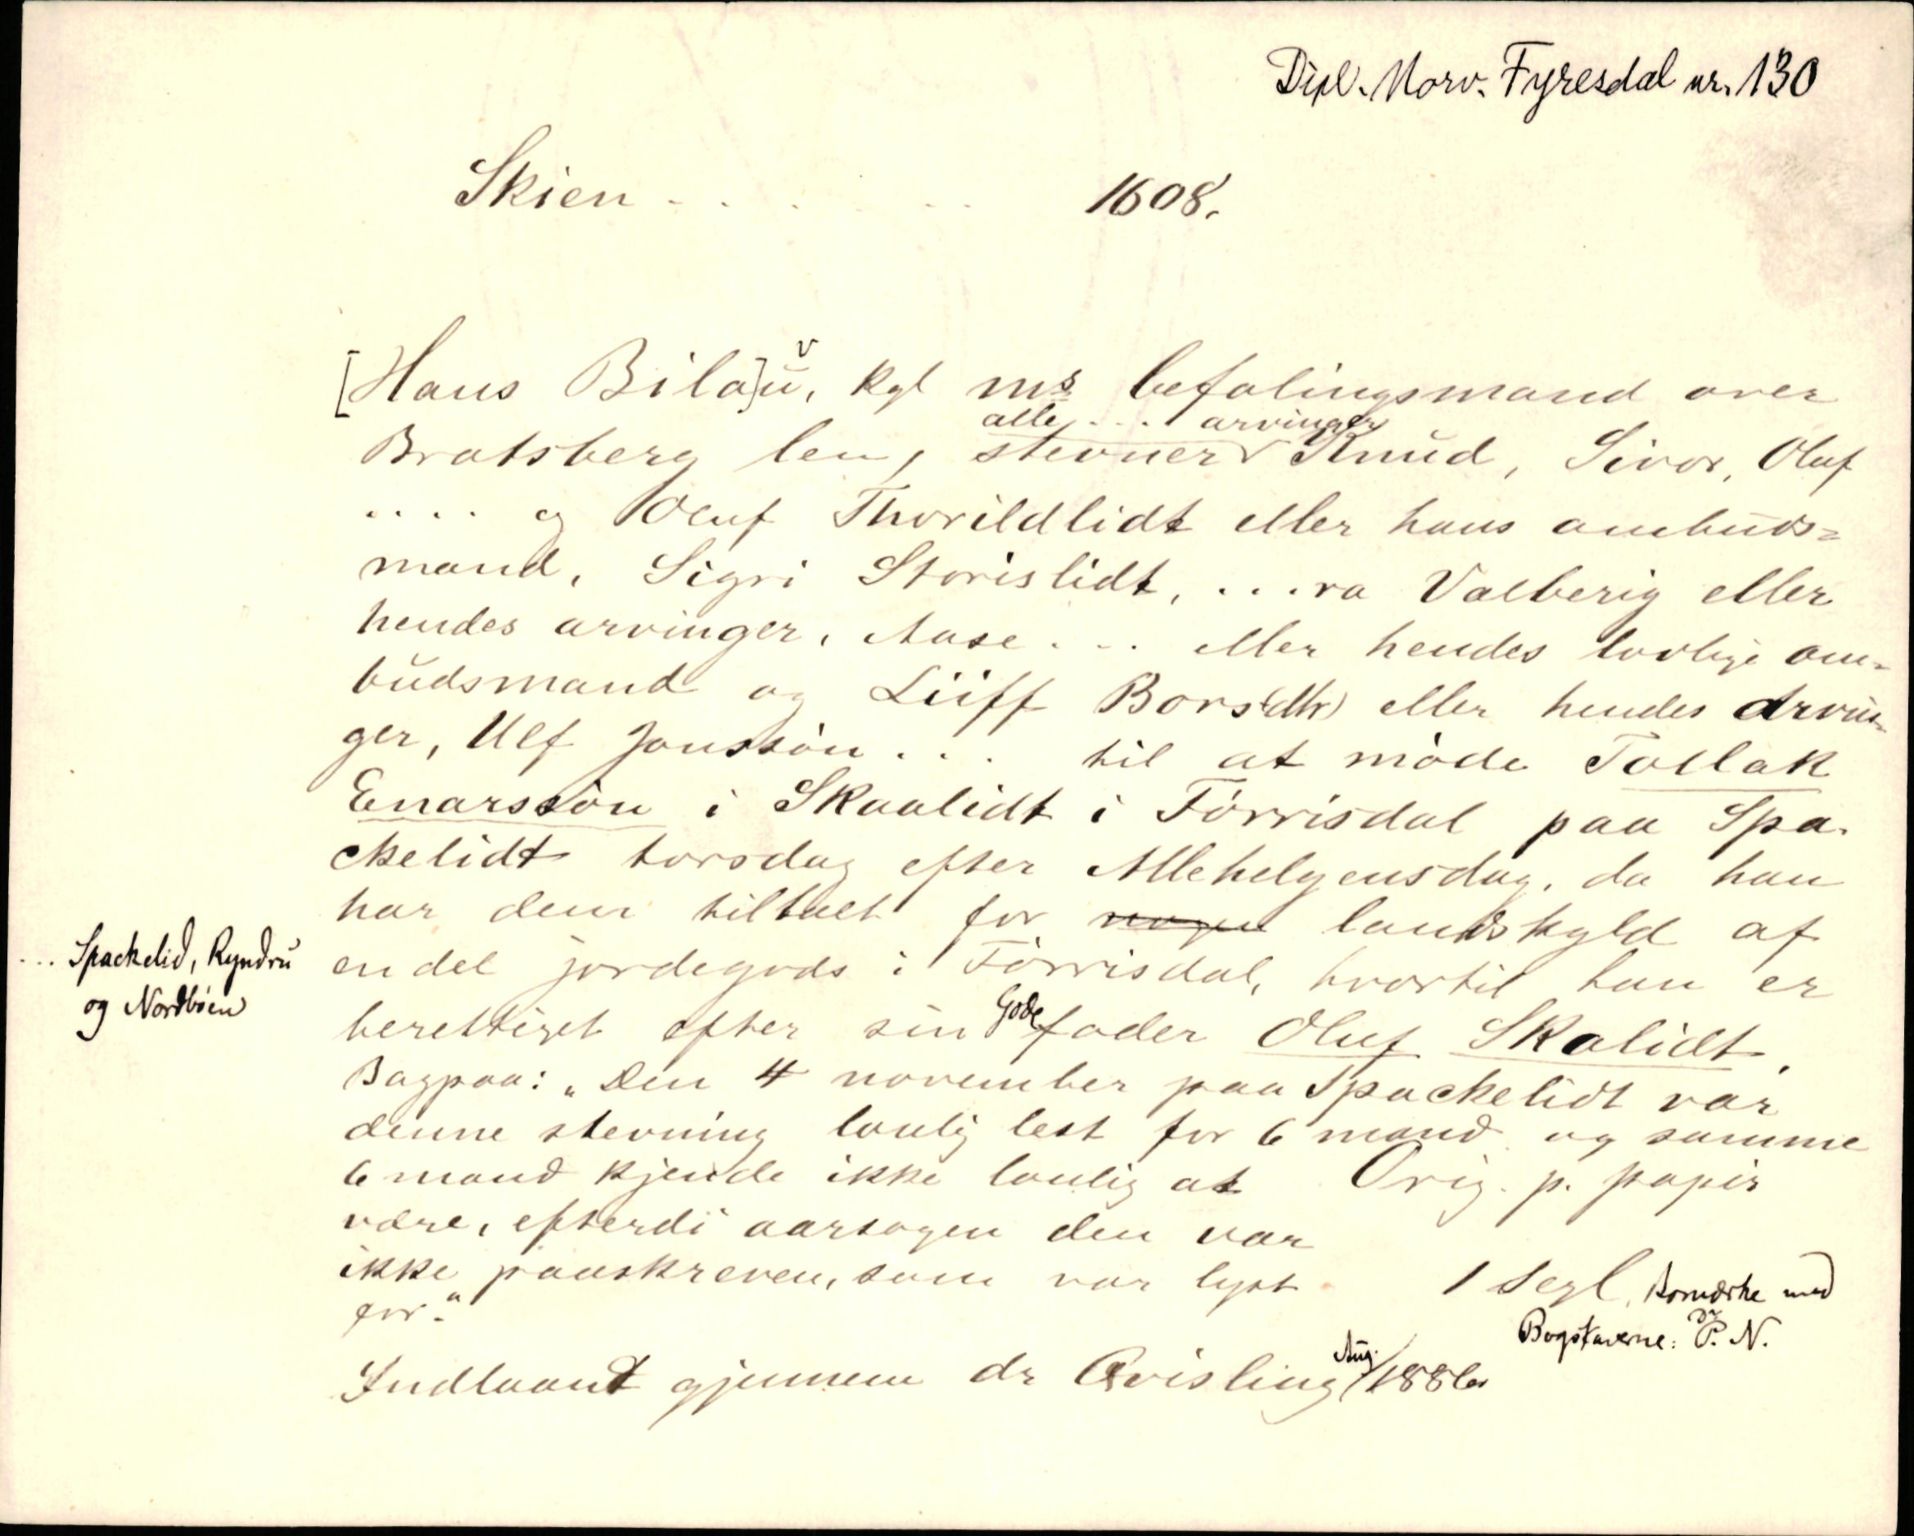 Dipl. Norv. Fyresdal nr. 130
Skien . . . . . . 1608.
[Hans Bila]u, kgl ms befalingsmand over
alle . . . arvinger
Bratsberg len, stevner Knud, Sivor, Oluf
. . . . og Oluf Thorildlidt eller hans ambuds=
mand, Sigri Storislidt, . . . ra Valberig eller
hendes arvinger, Aase . . . eller hendes lovlige om-
budsmand og Liiff Bors(dtr) eller hendes arvin-
ger, Ulf Jonssøn . . . til at møde Tollak
Enarssøn i Skaalidt i Førrisdal paa Spa-
ckelidt torsdag efter Allehelgensdag, da han
har dem tiltalt for nogen landskyld af
... Spackelid, Ryndru
og Nordbøen
en del jordegods i Førrisdal, hvortil han er
berettiget efter sin Godefader Oluf Skalidt.
Bagpaa: "Den 4 november paa Spackelidt var
denne stevning lovlig lest for 6 mand og samme
6 mand kjende ikke lovlig at
være, efterdi aarsagen den var
ikke paaskreven, som var lyst
for."
Orig. p. papir
1 Segl, Bomærke med
Bogstaverne: P. N.
Indlaant gjennem dr Qvisling Aug. 1886